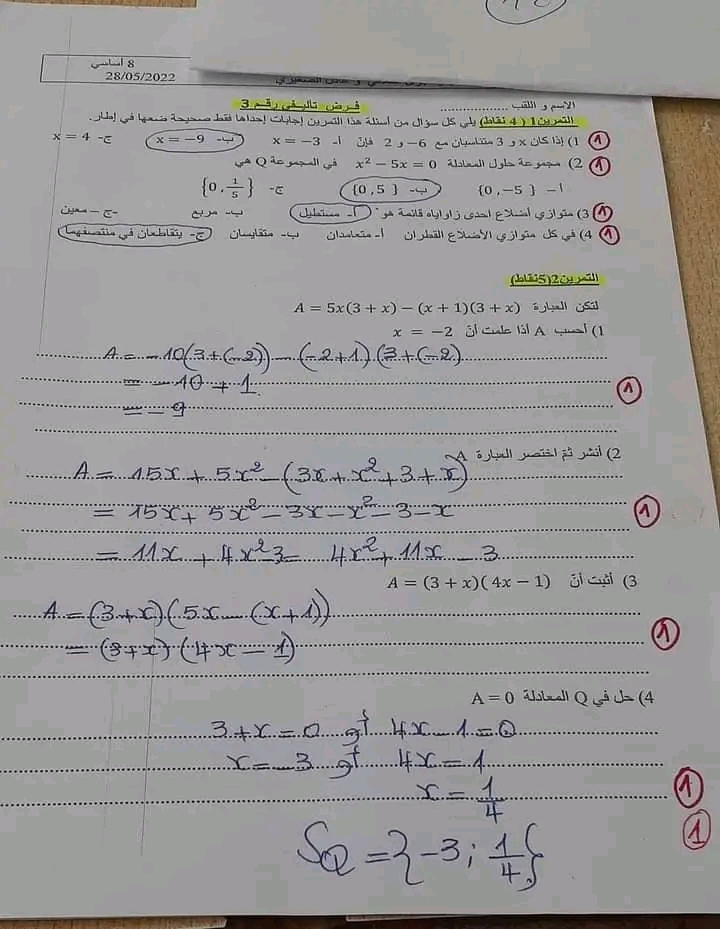 8 أساسي
28/05/2022
الاسم و اللقب ..................
فرض تأليفي رقم 3
التمرين1 ( 4 نقاط) يلي كل سؤال من أسئلة هذا التمرين إجابات إحداها فقط صحيحة ضعها في إطار.
1) إذا كان x و 3 متناسبان مع 6− و 2 فإن أ- x = −3 ب- x = −9 ج- x = 4
2) مجموعة حلول المعادلة x² − 5x = 0 في المجموعة Q هي
أ- {0, −5} ب- {0, 5} ج- {0, 1/5}
3) متوازي أضلاع احدى زواياه قائمة هو أ- مستطيل ب- مربع ج- معين
4) في كل متوازي الأضلاع القطران أ- متعامدان ب- متقايسان ج- يتقاطعان في منتصفهما
التمرين2(5نقاط)
لتكن العبارة A = 5x(3 + x) − (x + 1)(3 + x)
1) أحسب A أذا علمت أنّ x = −2
A = -10(3+(-2)) - (-2+1)(3+(-2)
= -10 + 1
= -9
1
2) أنشر ثمّ اختصر العبارة A
A = 15x + 5x² - (3x + x² + 3 + x)
= 15x + 5x² - 3x - x² - 3 - x
1
= 11x + 4x² - 3 = 4x² + 11x - 3
3) أثبت أنّ A = (3 + x)(4x − 1)
A = (3+x)(5x - (x+1))
1
= (3+x)(4x - 1)
4) حل في Q المعادلة A = 0
3+x=0 أو 4x-1=0
x=-3 أو 4x=1
x = 1/4
1
1
S_Q = {-3 ; 1/4}